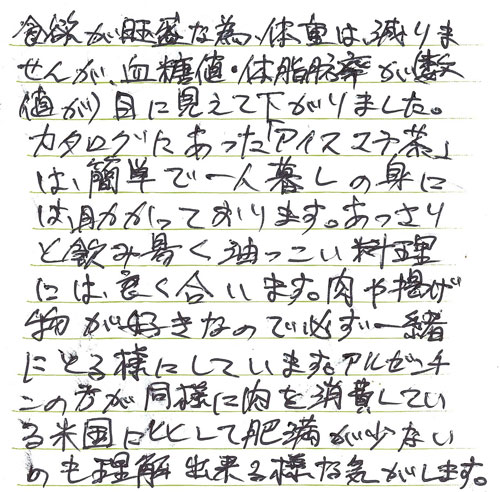 食欲が旺盛な為、体重は、減りま
せんが、血糖値・体脂肪率が(数
値が)目に見えて下がりました。
カタログにあった「アイスマテ茶」
は、簡単で一人暮しの身に
は、助かっております。あっさり
と飲み易く油っこい料理
には、良く合います。肉や揚げ
物が好きなので必ず一緒
にとる様にしています。アルゼンチ
ンの方が同様に肉を消費してい
る米国に比して肥満が少ない
のも理解出来る様な気がします。